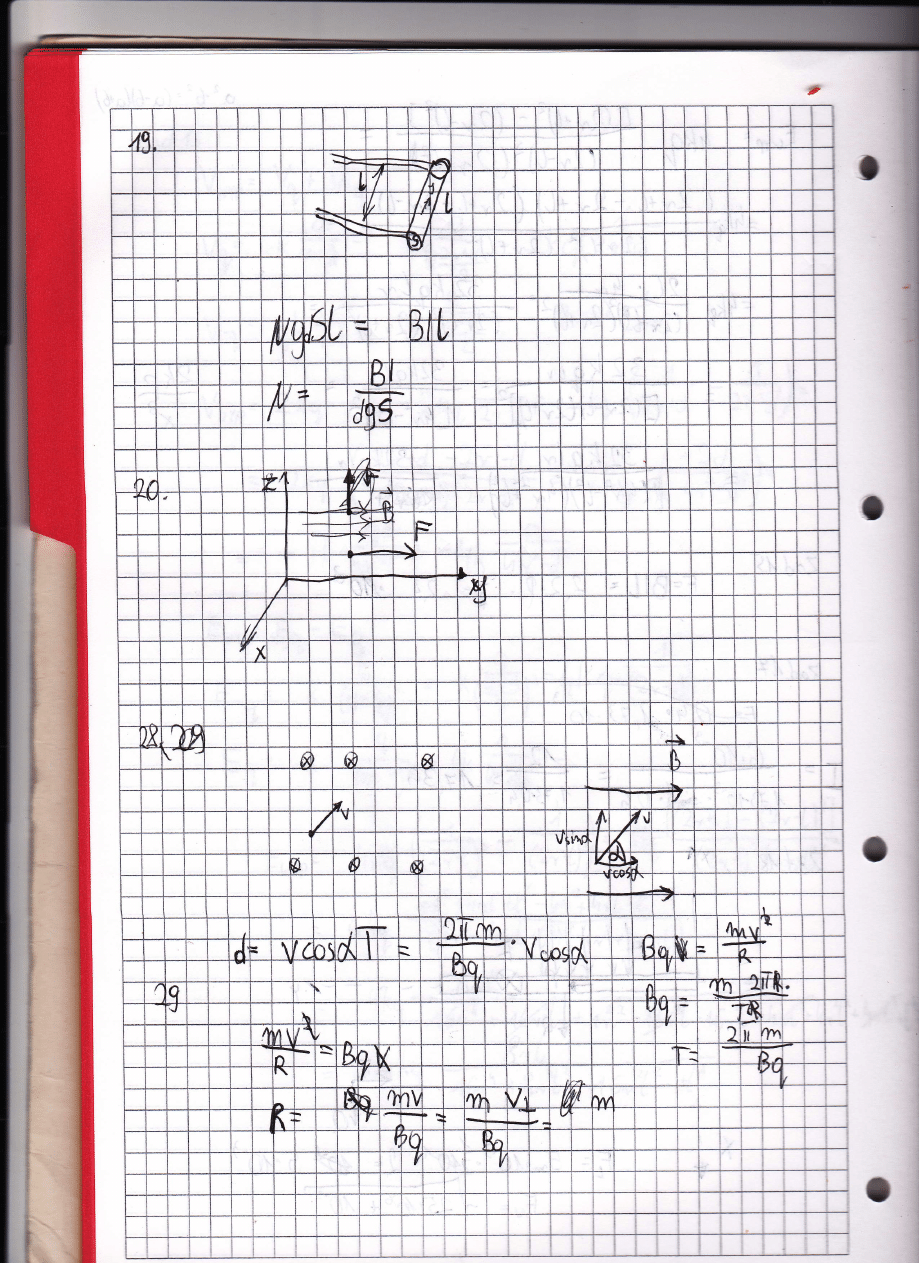 19.
l
l
NgdSl = BIl
N = BI / dgS
20.
z
F
B
F
y
x
28, 29
B
v
v
vsinα
α
vcosα
d = vcosαT = 2πm / Bq · vcosα
Bqv = mv² / R
29
Bq = m 2πR / TR
mv² / R = Bqv
T = 2πm / Bq
R = mv / Bq = m v⊥ / Bq = m